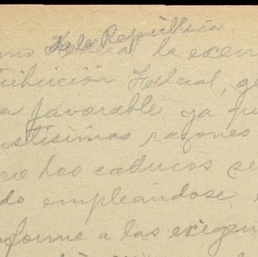 de la República
la exen
tribución Federal, g
a favorable ya qu
ustísimas razones
ue los caducos se
do empleándose
forme a las exigen